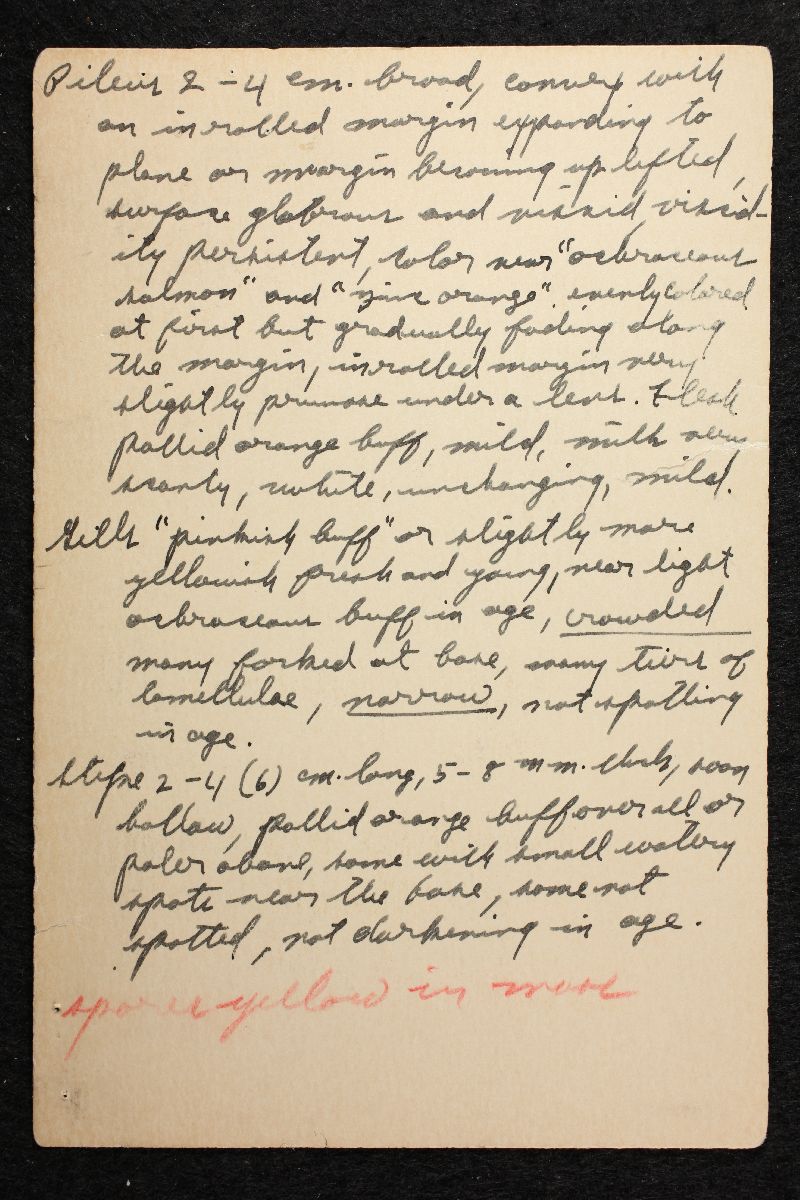 Pileus 2-4 cm. broad, convex with
an inrolled margin expanding to
plane or margin becoming uplifted,
surface glabrous and viscid, viscid-
ity persistent, color near "ochraceous
salmon" and "zinc orange". evenly colored
at first but gradually fading along
the margin, inrolled margin very
slightly pruinose under a lens. Flesh
pallid orange buff, mild, milk very
scanty, white, unchanging, mild.
Gills "pinkish buff" or slightly more
yellowish fresh and young, near light
ochraceous buff in age, crowded
many forked at base, many tiers of
lamellulae, narrow, not spotting
in age.
Stipe 2-4 (6) cm. long, 5-8 mm. thick, soon
hollow, pallid orange buff over all or
paler above, some with small watery
spots near the base, some not
spotted, not darkening in age.
spores yellow in mass